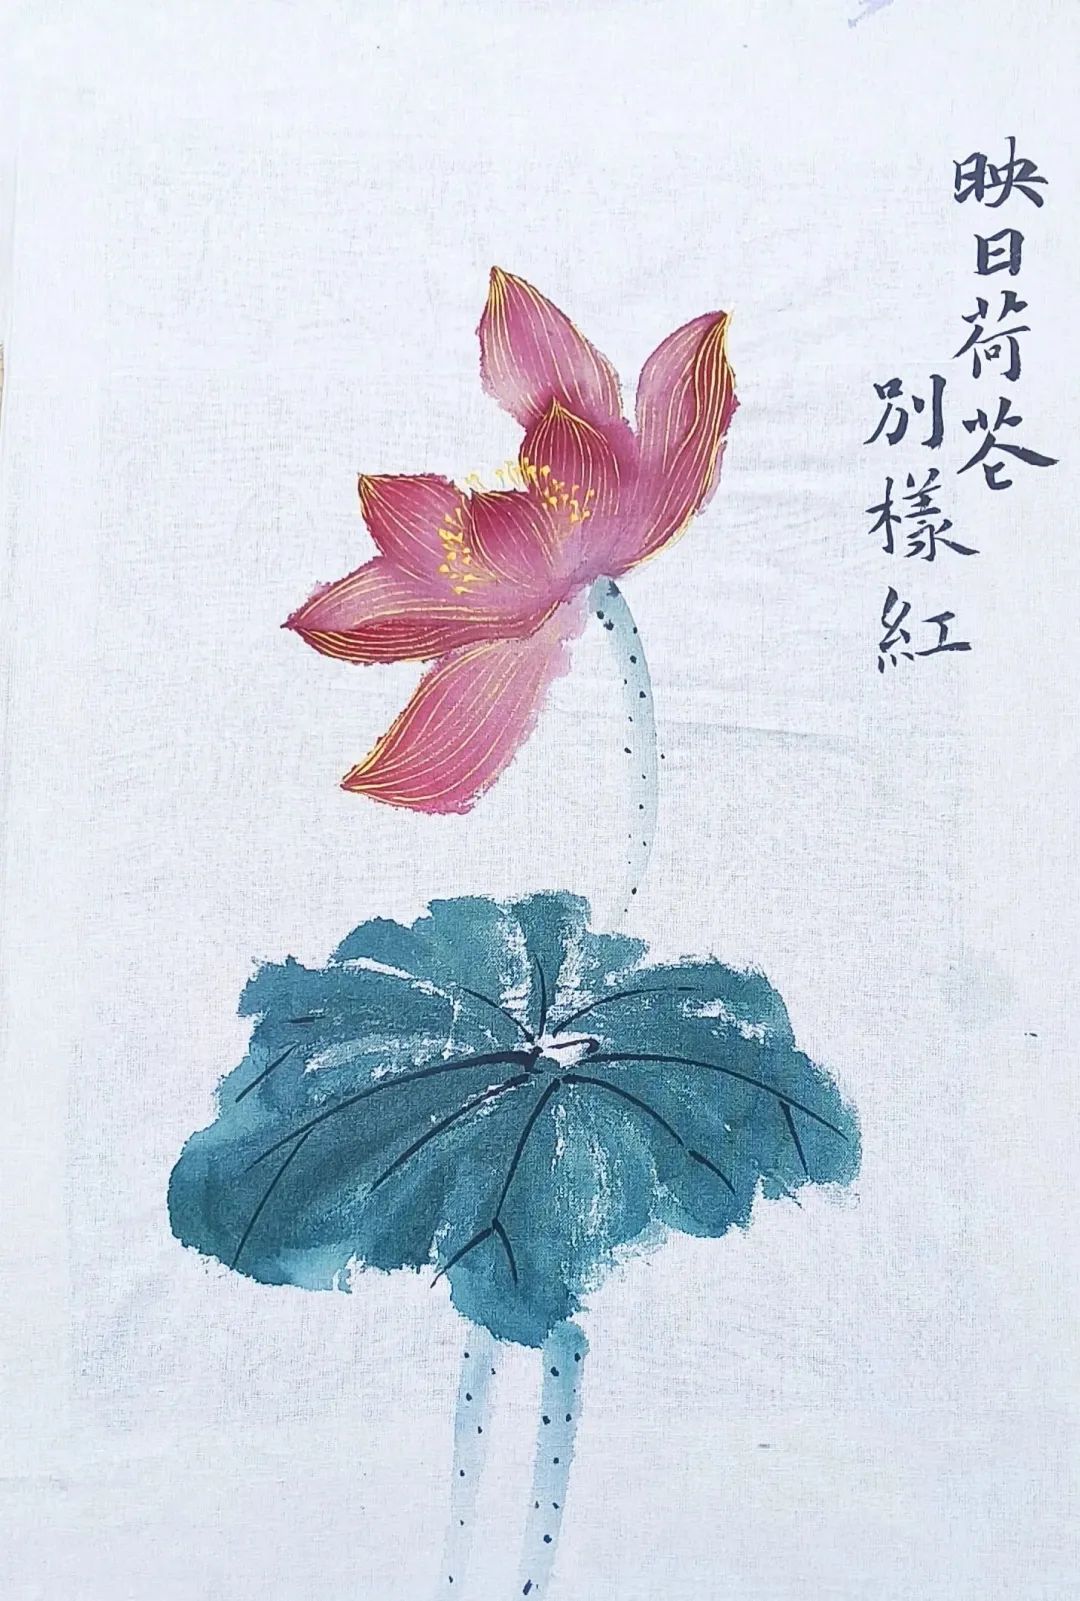 映日荷花
別樣紅